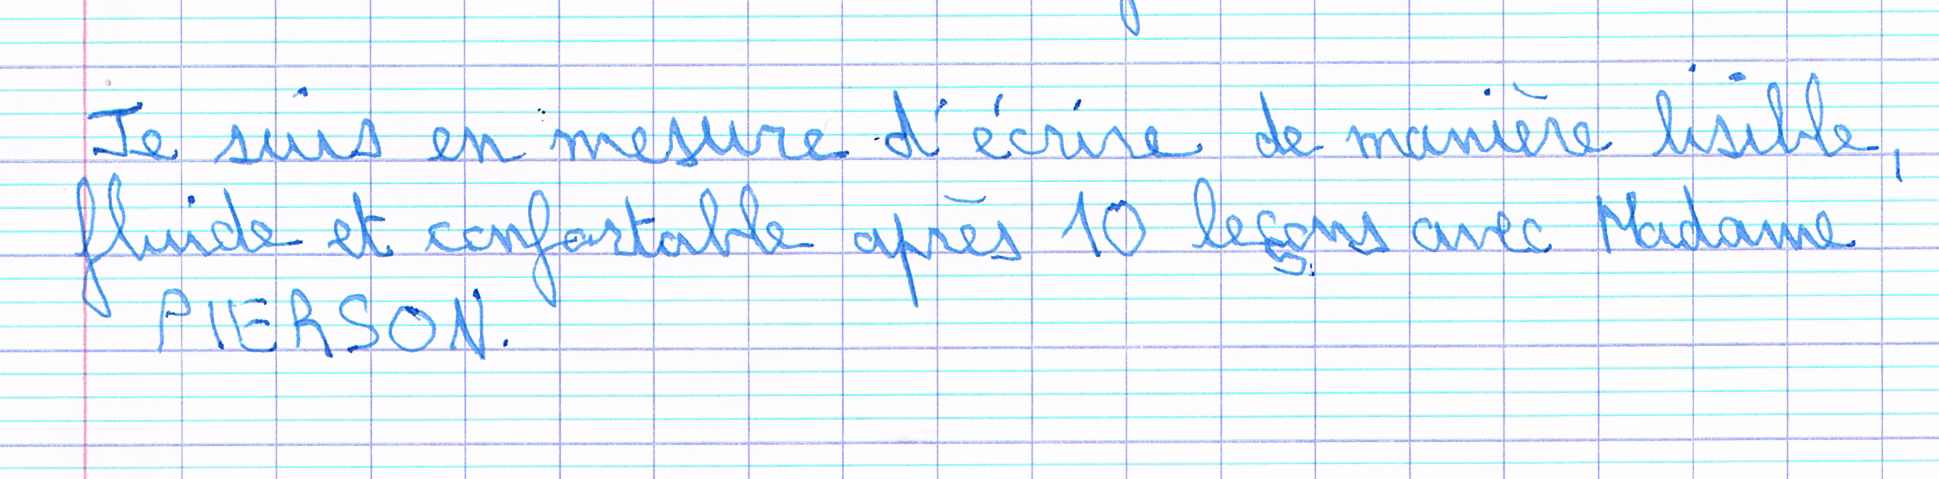 Je suis en mesure d'écrire de manière lisible,
fluide et confortable après 10 leçons avec Madame
PIERSON.